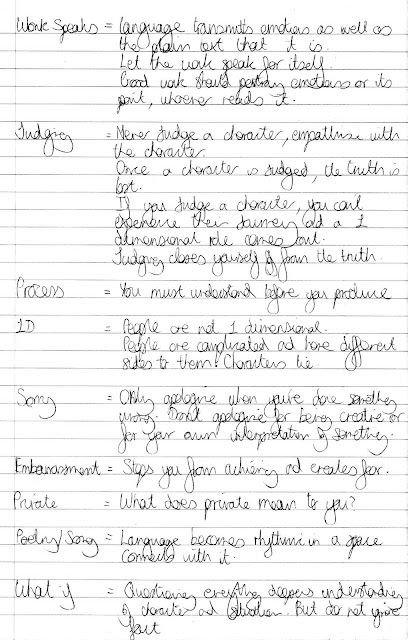 Work Speaks = Language transmitts emotions as well as
the plain text that it is.
Let the work speak for itself.
Good work should portray emotions or its
point, whoever reads it.
Judging = Never judge a character, empathise with
the character.
Once a character is judged, the truth is
lost.
If you judge a character, you can't
experience their journey and a 1
dimensional role comes out.
Judging closes yourself off from the truth.
Process = You must understand before you produce
1D = People are not 1 dimensional.
People are complicated and have different
sides to them. Characters lie.
Sorry = Only apologise when you're done something
wrong. Don't apologise for being creative or
for your own interpretation of something.
Embarrassment = Stops you from achieving and creates fear.
Private = What does private mean to you?
Poetry/Song = Language becomes rhythmic in a space
connects with it.
What if = Questioning everything deepens understanding
of character and situation. But do not ignore
fact